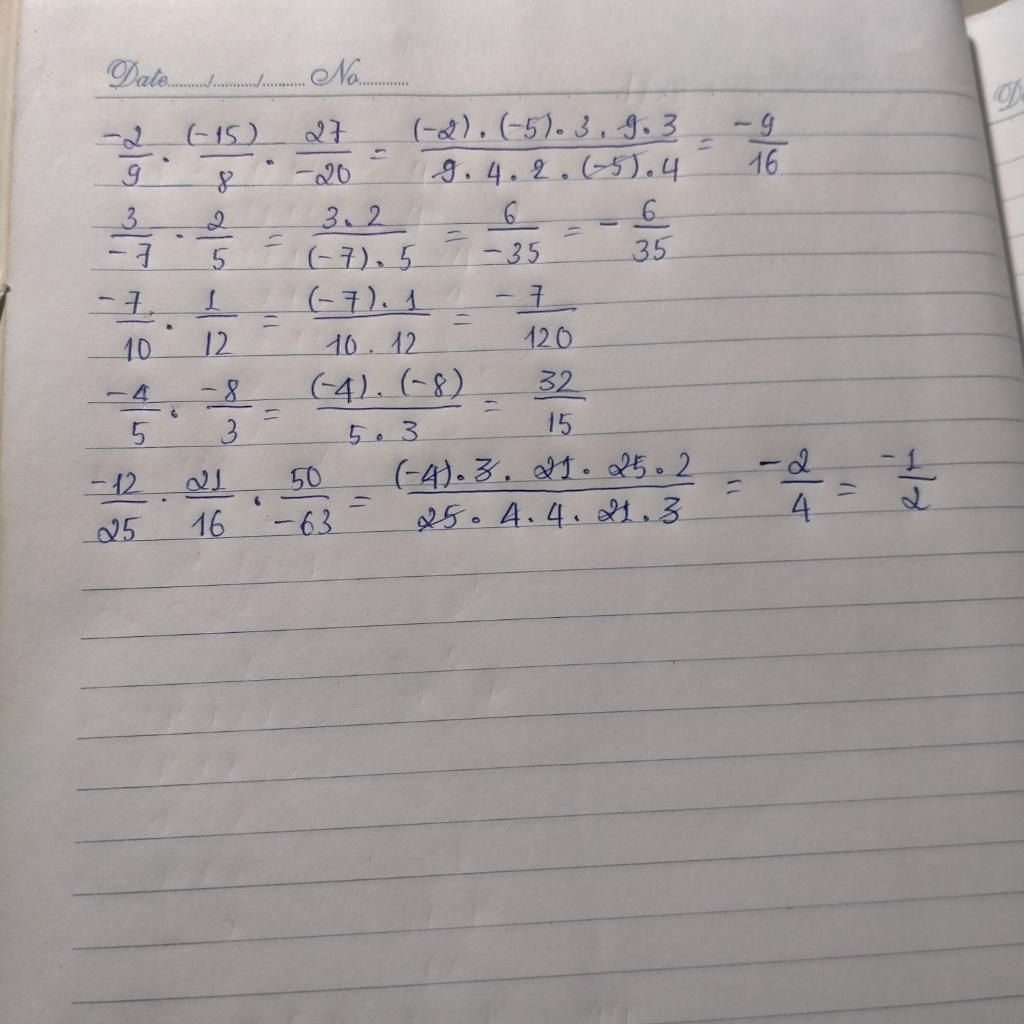 Date......../......../........ No............
-2/9 . (-15)/8 . 27/-20 = (-2).(-5).3.9.3/9.4.2.(-5).4 = -9/16
3/-7 . 2/5 = 3.2/(-7).5 = 6/-35 = - 6/35
-7/10 . 1/12 = (-7).1/10.12 = -7/120
-4/5 . -8/3 = (-4).(-8)/5.3 = 32/15
-12/25 . 21/16 . 50/-63 = (-4).3.21.25.2/25.4.4.21.3 = -2/4 = -1/2